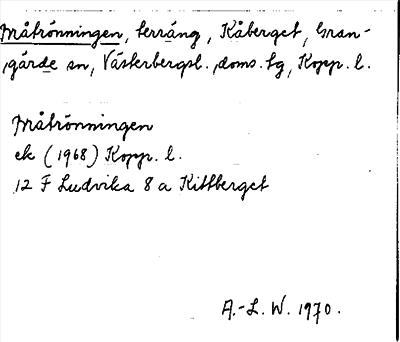 Måtrönningen, terräng, Kåberget, Gran-
gärde sn, Västerbergsl. doms. tg, Kopp. l.
Måtrönningen
ek (1968) Kopp. l.
12 F Ludvika 8 a Kittberget
A.-L. W. 1970.